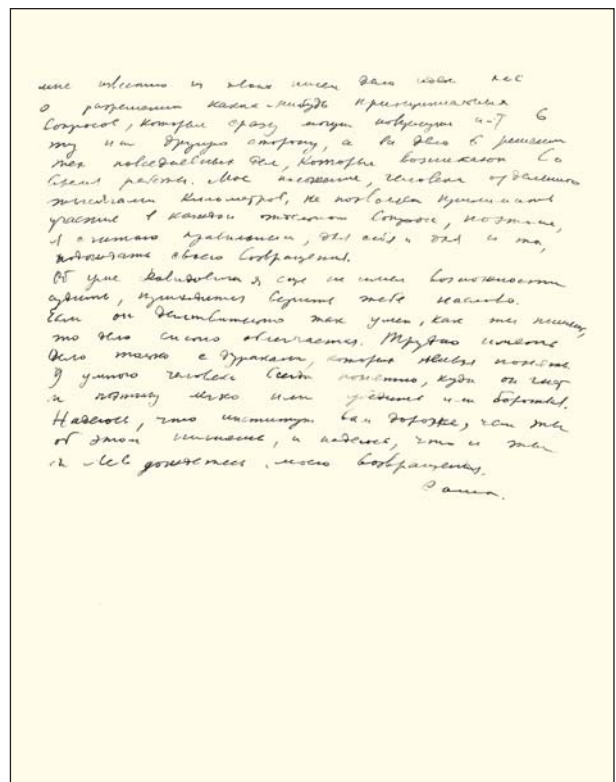 мне известно из твоих писем дело идет не
о разрешении каких-нибудь принципиальных
вопросов, которые сразу могут повернуть и-т в
ту или другую сторону, а дело в решении
тех повседневных дел, которые возникают во
время работы. Мое положение, человека отдаленного
тысячами километров, не позволяет принимать
участие в каждом отдельном вопросе, поэтому,
я считаю правильным, для себя и для
подождать своего возвращения.
Об уме Давидовича я еще не имел возможности
судить, приходится верить тебе наслово.
Если он действительно так умен, как ты пишешь,
то дело сильно облегчается. Трудно иметь
дело только с дураками, которых нельзя понять.
У умного человека всегда понятно, куда он гнет
и поэтому легко или уступить или бороться.
Надеюсь, что институт вам дороже, чем ты
об этом пишешь, и надеюсь, что и ты
и Лев дождетесь моего возвращения.
Саша.